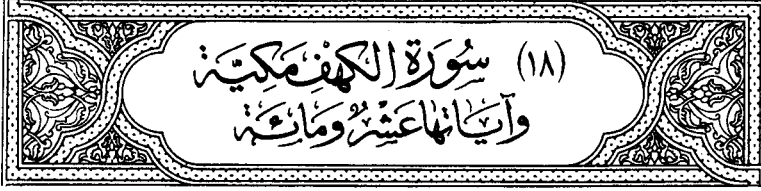 (١٨) سُورَة الكهف مَكيّة
وآياتها عَشْرٌ ومائة